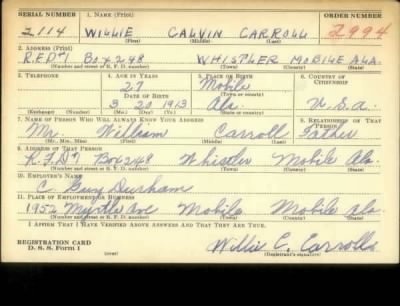 SERIAL NUMBER 1. NAME (Print) ORDER NUMBER
2114 WILLIE CALVIN CARROLL 2994
(First) (Middle) (Last)
2. ADDRESS (Print)
R.F.D#1 BOX 248 WHISTLER MOBILE ALA.
(Number and street or R. F. D. number) (Town) (County) (State)
3. TELEPHONE 4. AGE IN YEARS 5. PLACE OF BIRTH 6. COUNTRY OF CITIZENSHIP
27 Mobile
DATE OF BIRTH (Town or county)
3 20 1913 Ala. U.S.a.
(Exchange) (Number) (Mo.) (Day) (Yr.) (State or country)
7. NAME OF PERSON WHO WILL ALWAYS KNOW YOUR ADDRESS 8. RELATIONSHIP OF THAT PERSON
Mr. William Carroll Father
(Mr., Mrs., Miss) (First) (Middle) (Last)
9. ADDRESS OF THAT PERSON
R.F.D#1 Box 248 Whistler Mobile Ala.
(Number and street or R. F. D. number) (Town) (County) (State)
10. EMPLOYER'S NAME
C Guy Durham
11. PLACE OF EMPLOYMENT OR BUSINESS
1952 Myrtle Ave Mobile Mobile Ala.
(Number and street or R. F. D. number) (Town) (County) (State)
I AFFIRM THAT I HAVE VERIFIED ABOVE ANSWERS AND THAT THEY ARE TRUE.
REGISTRATION CARD
D. S. S. Form 1 Willie C. Carroll
(over) (Registrant's signature)